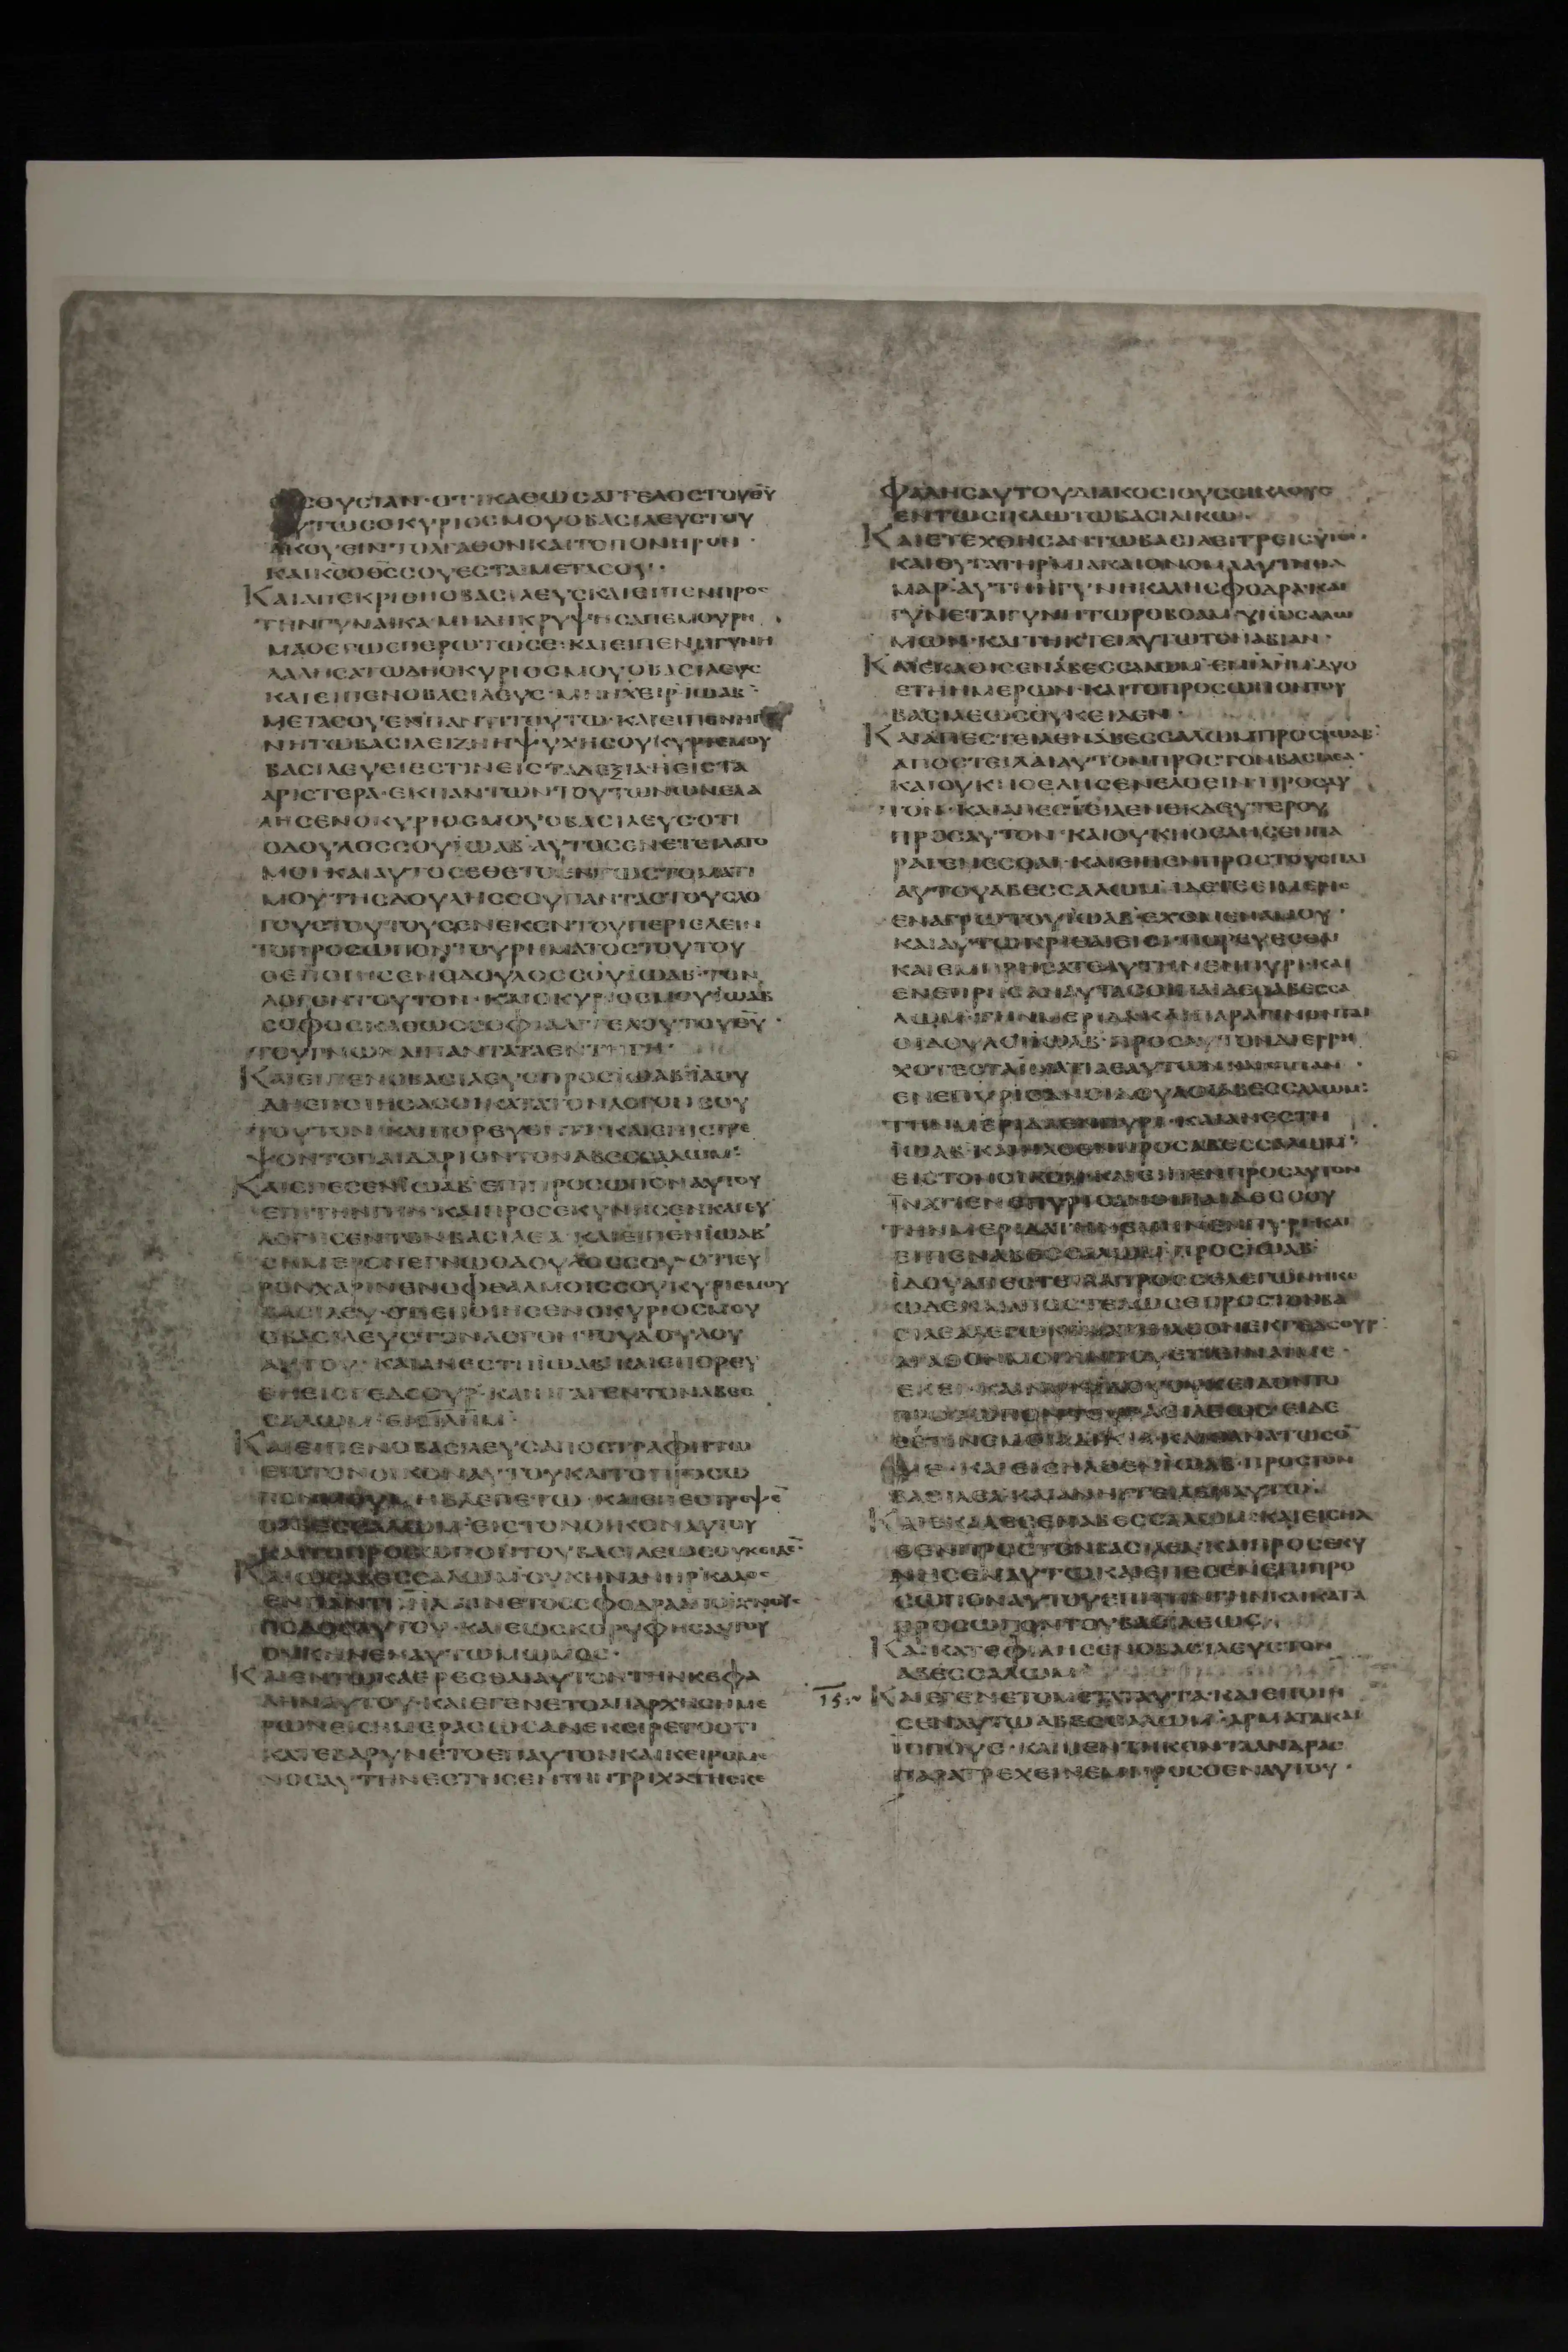 ΣΟΥΣΙΑΝ·ΟΤΙΚΑΘΩΣΑΓΓΕΛΟΣΤΟΥΘΥ
ΟΥΤΩΣΟΚΥΡΙΟΣΜΟΥΟΒΑΣΙΛΕΥΣΤΟΥ
ΑΚΟΥΕΙΝΤΟΑΓΑΘΟΝΚΑΙΤΟΠΟΝΗΡΟΝ·
ΚΑΙΚΣΟΘΣΣΟΥΕΣΤΑΙΜΕΤΑΣΟΥ·
ΚΑΙΑΠΕΚΡΙΘΗΟΒΑΣΙΛΕΥΣΚΑΙΕΙΠΕΝΠΡΟΣ
ΤΗΝΓΥΝΑΙΚΑ·ΜΗΔΗΚΡΥΨΗΣΑΠΕΜΟΥΡΗ
ΜΑΟΕΓΩΕΠΕΡΩΤΩΣΕ·ΚΑΙΕΙΠΕΝΗΓΥΝΗ
ΛΑΛΗΣΑΤΩΔΗΟΚΥΡΙΟΣΜΟΥΟΒΑΣΙΛΕΥΣ
ΚΑΙΕΙΠΕΝΟΒΑΣΙΛΕΥΣ·ΜΗΗΧΕΙΡΙΩΑΒ
ΜΕΤΑΣΟΥΕΝΠΑΝΤΙΤΟΥΤΩ·ΚΑΙΕΙΠΕΝΗΓΥ
ΝΗΤΩΒΑΣΙΛΕΙΖΗΗΨΥΧΗΣΟΥΚΥΡΙΕΜΟΥ
ΒΑΣΙΛΕΥΕΙΕΣΤΙΝΕΙΣΤΑΔΕΞΙΑΗΕΙΣΤΑ
ΑΡΙΣΤΕΡΑ·ΕΚΠΑΝΤΩΝΤΟΥΤΩΝΩΝΕΛΑ
ΛΗΣΕΝΟΚΥΡΙΟΣΜΟΥΟΒΑΣΙΛΕΥΣ·ΟΤΙ
ΟΔΟΥΛΟΣΣΟΥΙΩΑΒ·ΑΥΤΟΣΕΝΕΤΕΙΛΑΤΟ
ΜΟΙΚΑΙΑΥΤΟΣΕΘΕΤΟΕΝΤΩΣΤΟΜΑΤΙ
ΜΟΥΤΗΣΔΟΥΛΗΣΣΟΥΠΑΝΤΑΣΤΟΥΣΛΟ
ΓΟΥΣΤΟΥΤΟΥΣΕΝΕΚΕΝΤΟΥΠΕΡΙΕΛΕΙΝ
ΤΟΠΡΟΣΩΠΟΝΤΟΥΡΗΜΑΤΟΣΤΟΥΤΟΥ
ΟΕΠΟΙΗΣΕΝΟΔΟΥΛΟΣΣΟΥΙΩΑΒ·ΤΟΝ
ΛΟΓΟΝΤΟΥΤΟΝ·ΚΑΙΟΚΥΡΙΟΣΜΟΥΙΩΑΒ
ΣΟΦΟΣΚΑΘΩΣΣΟΦΙΑΑΓΓΕΛΟΥΤΟΥΘΥ·
ΤΟΥΓΝΩΝΑΙΠΑΝΤΑΤΑΕΝΤΗΓΗ·
ΚΑΙΕΙΠΕΝΟΒΑΣΙΛΕΥΣΠΡΟΣΙΩΑΒ·ΙΔΟΥ
ΔΗΕΠΟΙΗΣΑΣΟΙΚΑΤΑΤΟΝΛΟΓΟΝΣΟΥ
ΤΟΥΤΟΝ·ΚΑΙΠΟΡΕΥΕΥΚΑΙΕΠΙΣΤΡΕ
ΨΟΝΤΟΠΑΙΔΑΡΙΟΝΤΟΝΑΒΕΣΣΑΛΩΜ·
ΚΑΙΕΠΕΣΕΝΙΩΑΒΕΠΙΠΡΟΣΩΠΟΝΑΥΤΟΥ
ΕΠΙΤΗΝΓΗΝ·ΚΑΙΠΡΟΣΕΚΥΝΗΣΕΝΚΑΙΕΥ
ΛΟΓΗΣΕΝΤΟΝΒΑΣΙΛΕΑ·ΚΑΙΕΙΠΕΝΙΩΑΒ
ΣΗΜΕΡΟΝΕΓΝΩΟΔΟΥΛΟΣΣΟΥ·ΟΤΙΕΥ
ΡΟΝΧΑΡΙΝΕΝΟΦΘΑΛΜΟΙΣΣΟΥΚΥΡΙΕΜΟΥ
ΒΑΣΙΛΕΥ·ΟΤΙΕΠΟΙΗΣΕΝΟΚΥΡΙΟΣΜΟΥ
ΟΒΑΣΙΛΕΥΣΤΟΝΛΟΓΟΝΤΟΥΔΟΥΛΟΥ
ΑΥΤΟΥ·ΚΑΙΑΝΕΣΤΗΙΩΑΒΚΑΙΕΠΟΡΕΥ
ΘΗΕΙΣΓΕΔΣΟΥΡ·ΚΑΙΗΓΑΓΕΝΤΟΝΑΒΕΣ
ΣΑΛΩΜ·ΕΙΣΙΛΗΜ·
ΚΑΙΕΙΠΕΝΟΒΑΣΙΛΕΥΣΑΠΟΣΤΡΑΦΗΤΩ
ΕΙΣΤΟΝΟΙΚΟΝΑΥΤΟΥΚΑΙΤΟΠΡΟΣΩ
ΠΟΝΜΟΥΜΗΒΛΕΠΕΤΩ·ΚΑΙΕΠΕΣΤΡΕΨΕ
ΟΑΒΕΣΣΑΛΩΜ·ΕΙΣΤΟΝΟΙΚΟΝΑΥΤΟΥ
ΚΑΙΤΟΠΡΟΣΩΠΟΝΤΟΥΒΑΣΙΛΕΩΣΟΥΚΕΙΔΕ·
ΚΑΙΩΣΑΒΕΣΣΑΛΩΜΟΥΧΗΝΑΝΗΡΚΑΛΟΣ
ΕΝΠΑΝΤΙΙΗΛΑΙΝΕΤΟΣΣΦΟΔΡΑΑΠΟΙΧΝΟΥΣ
ΠΟΔΟΣΑΥΤΟΥ·ΚΑΙΕΩΣΚΟΡΥΦΗΣΑΥΤΟΥ
ΟΥΚΗΝΕΝΑΥΤΩΜΩΜΟΣ·
ΚΑΙΕΝΤΩΚΑΕΡΕΣΘΑΙΑΥΤΟΝΤΗΝΚΕΦΑ
ΛΗΝΑΥΤΟΥ·ΚΑΙΕΓΕΝΕΤΟΑΠΑΡΧΗΣΗΜΕ
ΡΩΝΕΙΣΗΜΕΡΑΣΩΣΑΝΕΚΕΙΡΕΤΟΟΤΙ
ΚΑΤΕΒΑΡΥΝΕΤΟΕΠΑΥΤΟΝΚΑΙΚΕΙΡΟΜΕ
ΝΟΣΑΥΤΗΝΕΣΤΗΣΕΝΤΗΝΤΡΙΧΑΤΗΣΚΕ
ΦΑΛΗΣΑΥΤΟΥΔΙΑΚΟΣΙΟΥΣΣΙΚΛΟΥΣ
ΕΝΤΩΣΙΚΛΩΤΩΒΑΣΙΛΙΚΩ·
ΚΑΙΕΤΕΧΘΗΣΑΝΤΩΒΑΣΙΛΕΙΤΡΕΙΣΥΙΟΙ·
ΚΑΙΘΥΓΑΤΗΡΜΙΑΚΑΙΟΝΟΜΑΑΥΤΗΘΑ
ΜΑΡ·ΑΥΤΗΗΓΥΝΗΚΑΛΗΣΦΟΔΡΑ·ΚΑΙ
ΓΥΝΕΤΑΙΓΥΝΗΤΩΡΟΒΟΑΜΥΙΩΣΑΛΩ
ΜΩΝ·ΚΑΙΤΗΚΤΕΙΑΥΤΩΤΟΝΑΒΙΑΝ·
ΚΑΙΕΚΑΘΙΣΕΝΑΒΕΣΣΑΛΩΜ·ΕΝΙΛΗΜΔΥΟ
ΕΤΗΗΜΕΡΩΝ·ΚΑΙΤΟΠΡΟΣΩΠΟΝΤΟΥ
ΒΑΣΙΛΕΩΣΟΥΚΕΙΔΕΝ·
ΚΑΙΑΠΕΣΤΕΙΛΕΝΑΒΕΣΣΑΛΩΜΠΡΟΣΙΩΑΒ·
ΑΠΟΣΤΕΙΛΑΙΑΥΤΟΝΠΡΟΣΤΟΝΒΑΣΙΛΕΑ·
ΚΑΙΟΥΚΗΘΕΛΗΣΕΝΕΛΘΕΙΝΠΡΟΣΑΥ
ΤΟΝ·ΚΑΙΑΠΕΣΤΕΙΛΕΝΕΚΔΕΥΤΕΡΟΥ
ΠΡΟΣΑΥΤΟΝ·ΚΑΙΟΥΚΗΘΕΛΗΣΕΝΠΑ
ΡΑΓΕΝΕΣΘΑΙ·ΚΑΙΕΙΠΕΝΠΡΟΣΤΟΥΣΠΑΙ
ΑΥΤΟΥΑΒΕΣΣΑΛΩΜ·ΙΔΕΤΕΕΙΜΕΡΙΣ
ΕΝΑΓΡΩΤΟΥΙΩΑΒΕΧΟΜΕΝΑΜΟΥ·
ΚΑΙΑΥΤΩΚΡΙΘΑΙΕΙΣΙΝΠΟΡΕΥΕΣΘΑΙ
ΚΑΙΕΜΠΡΗΣΑΤΕΑΥΤΗΝΕΝΠΥΡΙ·ΚΑΙ
ΕΝΕΠΡΗΣΑΝΑΥΤΑΣΟΙΠΑΙΔΕΣΑΒΕΣΣΑ
ΛΩΜ·ΤΗΝΜΕΡΙΔΑΚΑΙΠΑΡΑΓΙΝΟΝΤΑΙ
ΟΙΔΟΥΛΟΙΙΩΑΒ·ΠΡΟΣΑΥΤΟΝΔΙΕΡΡΗ
ΧΟΤΕΣΤΑΙΜΑΤΙΑΕΑΥΤΩΝΚΑΙΕΙΠΑΝ·
ΕΝΕΠΥΡΙΣΑΝΟΙΔΟΥΛΟΙΑΒΕΣΣΑΛΩΜ·
ΤΗΝΜΕΡΙΔΑΕΝΠΥΡΙ·ΚΑΙΑΝΕΣΤΗ
ΙΩΑΒ·ΚΑΙΗΛΘΕΝΠΡΟΣΑΒΕΣΣΑΛΩΜ·
ΕΙΣΤΟΝΟΙΚΟΝ·ΚΑΙΕΙΠΕΝΠΡΟΣΑΥΤΟΝ
ΤΗΝΜΕΡΙΔΑΤΗΝΕΜΗΝΕΝΠΥΡΙΚΑΙ
ΕΙΠΕΝΑΒΕΣΣΑΛΩΜΠΡΟΣΙΩΑΒ
ΙΔΟΥΑΠΕΣΤΕΙΛΑΠΡΟΣΣΕΛΕΓΩΝΗΚΕ
ΩΔΕΚΑΙΑΠΟΣΤΕΛΩΣΕΠΡΟΣΤΟΝΒΑ
ΑΓΑΘΟΝΜΟΙΗΝΤΟΥΕΤΙΕΙΝΑΙΜΕ·
ΕΚΕΙ·ΚΑΙΝΥΝΙΔΟΥΟΥΚΕΙΔΟΝΤΟ
ΠΡΟΣΩΠΟΝΤΟΥΒΑΣΙΛΕΩΣ·ΕΙΔΕ
ΜΕ·ΚΑΙΕΙΣΗΛΘΕΝΙΩΑΒ·ΠΡΟΣΤΟΝ
ΒΑΣΙΛΕΑΚΑΙΑΝΗΓΓΕΙΛΕΝΑΥΤΩ·
ΚΑΙΕΚΑΛΕΣΕΝΑΒΕΣΣΑΛΩΜ·ΚΑΙΕΙΣΗΛ
ΘΕΝΠΡΟΣΤΟΝΒΑΣΙΛΕΑ·ΚΑΙΠΡΟΣΕΚΥ
ΝΗΣΕΝΑΥΤΩΚΑΙΕΠΕΣΕΝΕΠΙΠΡΟ
ΣΩΠΟΝΑΥΤΟΥΕΠΙΤΗΝΓΗΝΚΑΙΚΑΤΑ
ΠΡΟΣΩΠΟΝΤΟΥΒΑΣΙΛΕΩΣ·
ΚΑΙΚΑΤΕΦΙΛΗΣΕΝΟΒΑΣΙΛΕΥΣΤΟΝ
ΑΒΕΣΣΑΛΩΜ·
15 ΚΑΙΕΓΕΝΕΤΟΜΕΤΑΤΑΥΤΑ·ΚΑΙΕΠΟΙΗ
ΣΕΝΑΥΤΩΑΒΕΣΣΑΛΩΜ·ΑΡΜΑΤΑΚΑΙ
ΙΠΠΟΥΣ·ΚΑΙΠΕΝΤΗΚΟΝΤΑΑΝΔΡΑΣ
ΠΑΡΑΤΡΕΧΕΙΝΕΜΠΡΟΣΘΕΝΑΥΤΟΥ·